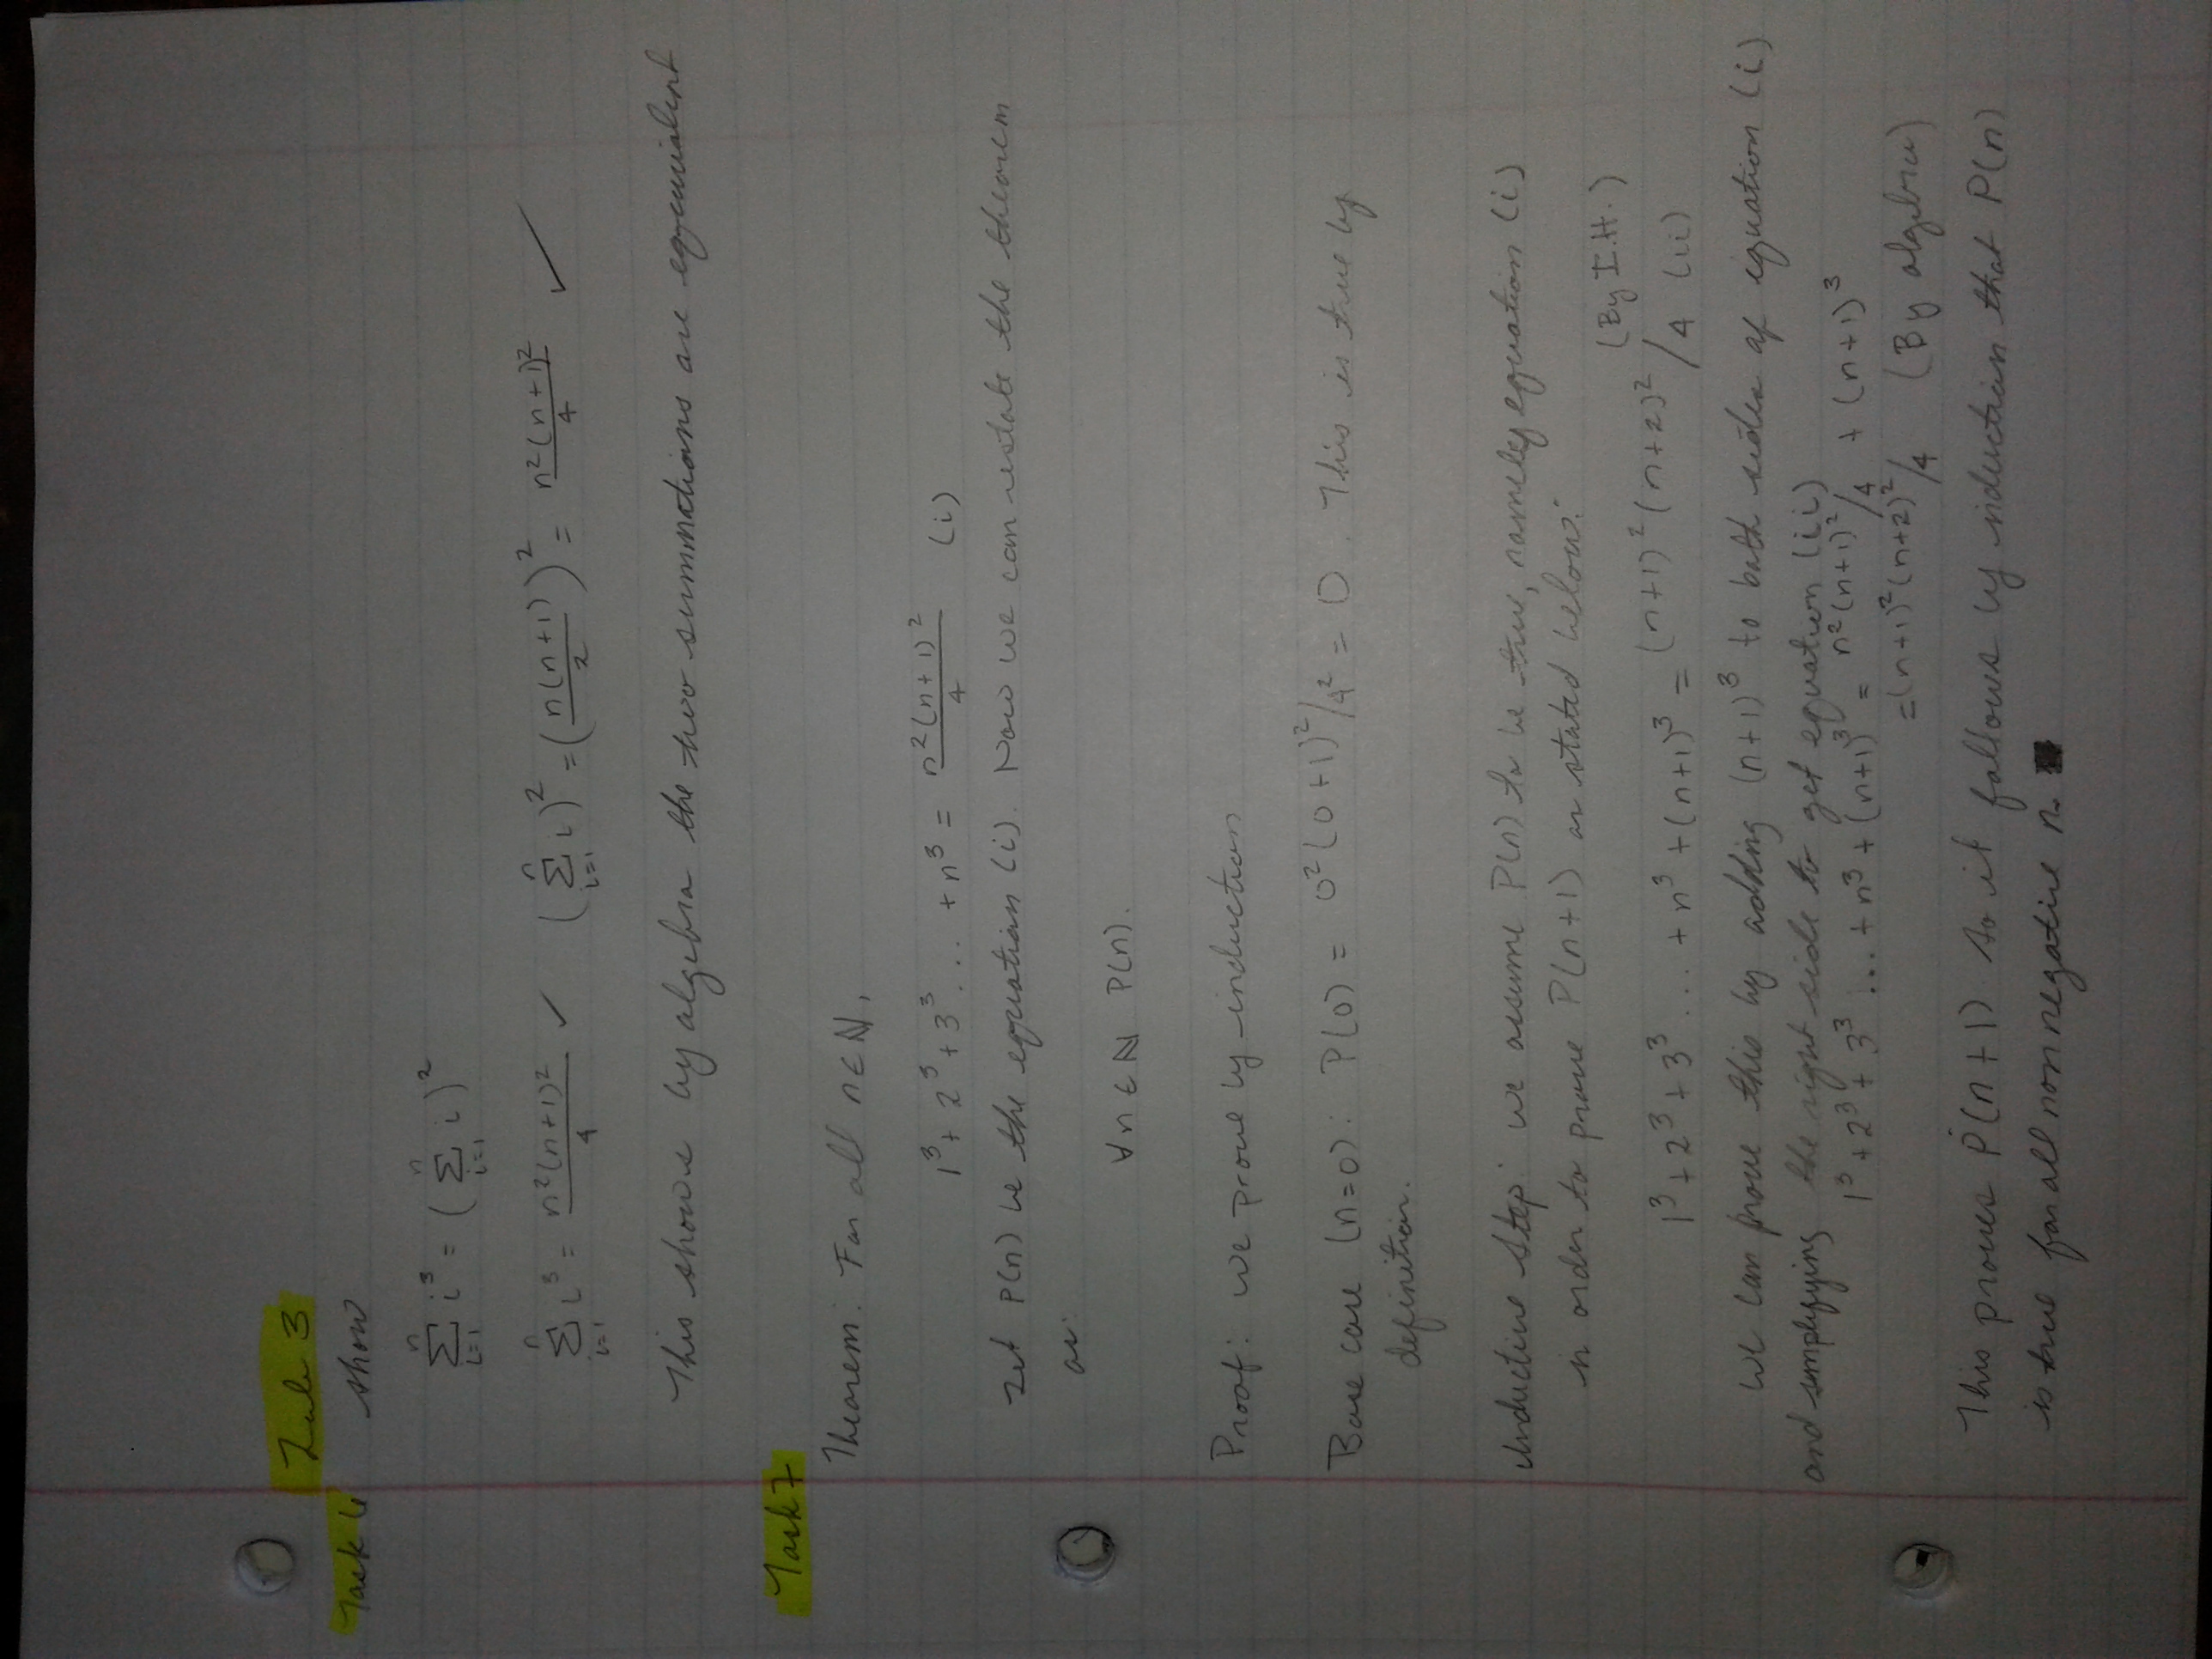 Lab 3
Task 6 show
∑_{i=1}^{n} i³ = (∑_{i=1}^{n} i)²
∑_{i=1}^{n} i³ = n²(n+1)²/4 ✓ (∑_{i=1}^{n} i)² = (n(n+1)/2)² = n²(n+1)²/4 ✓
This shows by algebra the two summations are equivalent
Task 7
Theorem: For all n ∈ ℕ,
1³ + 2³ + 3³ ... + n³ = n²(n+1)²/4 (i)
Let P(n) be the equation (i). Now we can restate the theorem
as:
∀n ∈ ℕ P(n).
Proof: we prove by induction
Base case (n=0): P(0) = 0²(0+1)²/4² = 0. This is true by
definition.
Inductive Step: we assume P(n) to be true, namely equation (i)
in order to prove P(n+1) as stated below:
(By I.H.)
1³ + 2³ + 3³ ... + n³ + (n+1)³ = (n+1)²(n+2)²/4 (ii)
we can prove this by adding (n+1)³ to both sides of equation (i)
and simplifying the right side to get equation (ii)
1³ + 2³ + 3³ ... + n³ + (n+1)³ = n²(n+1)²/4 + (n+1)³
= (n+1)²(n+2)²/4 (By algebra)
This proves P(n+1) so it follows by induction that P(n)
is true for all nonnegative n. ■